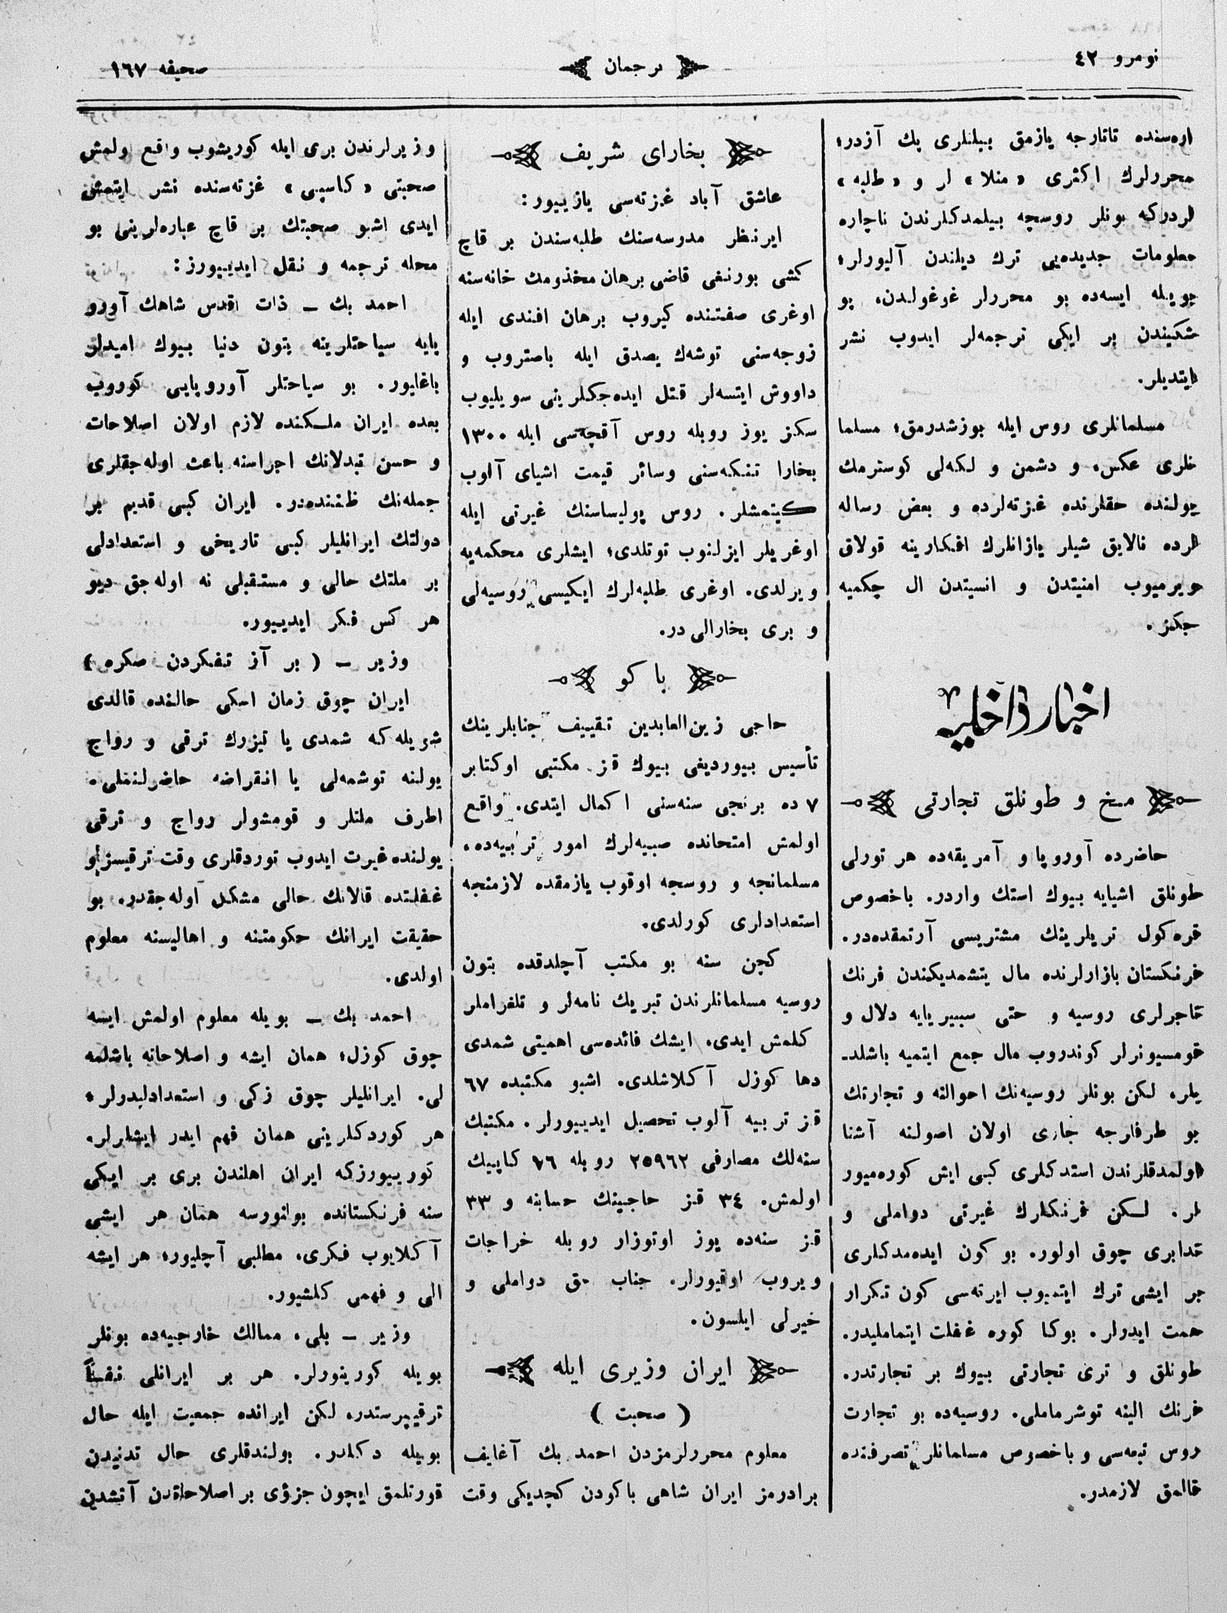 نومرو ٤٢
ترجمان
صحیفه ١٦٧
اره‌سنده تاتارجه یازمق بیلنلری پك آزدر؛
محررلرك اكثری «منلا» لر و «طلبه»
لردركه بونلر روسچه بیلمدكلرندن ناچاره
معلومات جدیده‌یی ترك دیلندن آلیورلر؛
بویله ایسه‌ده بو محررلر غوغولدن، پو
شكیندن بر ایكی ترجمه‌لر ایدوب نشر
ایتدیلر.
مسلمانلری روس ایله بوزشدرمق؛ مسلما
نلری عكس، و دشمن و لكه‌لی كوسترمك
یولنده حقلرنده غزته‌لرده و بعض رساله
لرده نالایق شیلر یازانلرك افكارینه قولاق
ویرمیوب امنیتدن و انسیتدن ال چكمیه
جكز.
اخبار داخلیه
میخ و طونلق تجارتی
حاضرده آوروپا و آمریقه‌ده هر تورلی
طونلق اشیایه بیوك استك واردر. باخصوص
قره‌كول تریلرینك مشتریسی آرتمقده‌در.
فرنكستان بازارلرنده مال یتشمدیكندن فرنك
تاجرلری روسیه و حتی سیبیریایه دلال و
قومسیونرلر كوندروب مال جمع ایتمیه باشلد-
یلر. لكن بونلر روسیه‌نك احوالنه و تجارتك
بو طرفلرجه جاری اولان اصولنه آشنا
اولمدقلرندن استدكلری كبی ایش كوره‌میور
لر. لكن فرنكلرك غیرتی دواملی و
تدابری چوق اولور. بو كون ایده‌مدكلری
بر ایشی ترك ایتمیوب ایرته‌سی كون تكرار
همت ایدرلر. بوكا كوره غفلت ایتماملیدر.
طونلق و تری تجارتی بیوك بر تجارتدر.
فرنك الینه توشرماملی. روسیه‌ده بو تجارت
روس تبعه‌سی و باخصوص مسلمانلر تصرفنده
قالمق لازمدر.
بخارای شریف
عاشق آباد غزته‌سی یازییور:
ایرنظر مدرسه‌سنك طلبه‌سندن بر قاچ
كشی بورنغی قاضی برهان مخذومك خانه‌سنه
اوغری صفتنده كیروب برهان افندی ایله
زوجه‌سنی توشه‌ك یصدق ایله باصتروب و
داووش ایتسه‌لر قتل ایده‌جكلرینی سویلیوب
سكز یوز روبله روس آقچه‌سی ایله ١٣٠٠
بخارا تنكه‌سنی وسائر قیمت اشیای آلوب
كیتمشلر. روس پولیساسنك غیرتی ایله
اوغریلر ایزلنوب توتلدی؛ ایشلری محكمه‌یه
ویرلدی. اوغری طلبه‌لرك ایكیسی روسیه‌لی
و بری بخارالی در.
باكو
حاجی زین‌العابدین تقییف جنابلرینك
تأسیس بیوردیغی بیوك قز مكتبی اوكتابر
٧ ده برنجی سنه‌سنی اكمال ایتدی. واقع
اولمش امتحانده صبیه‌لرك امور تربیه‌ده،
مسلمانجه و روسجه اوقوب یازمقده لازمنجه
استعدادلری كورلدی.
كچن سنه بو مكتب آچلدقده بتون
روسیه مسلمانلرندن تبریك نامه‌لر و تلغراملر
كلمش ایدی. ایشك فائده‌سی اهمیتی شمدی
دها كوزل آكلاشلدی. اشبو مكتبده ٦٧
قز تربیه آلوب تحصیل ایدییورلر. مكتبك
سنه‌لك مصارفی ٢٥٩٦٢ روبله ٧٦ كاپیك
اولمش. ٣٤ قز حاجینك حسابنه و ٣٣
قز سنه‌ده یوز اوتوزار روبله خراجات
ویروب اوقیورلر. جناب حق دواملی و
خیرلی ایلسون.
ایران وزیری ایله
(صحبت)
معلوم محررلرمزدن احمد بك آغایف
برادرمز ایران شاهی باكودن كچدیكی وقت
وزیرلرندن بری ایله كوریشوب واقع ولمش
صحبتی «كاسپی» غزته‌سنده نشر ایتمش
ایدی اشبو صحبتك بر قاچ عباره‌لرینی بو
محله ترجمه و نقل ایدییورز:
احمد بك ـ ذات اقدس شاهك آورو
پایه سیاحتلرینه بتون دنیا بیوك امیدلر
باغلیور. بو سیاحتلر آوروپایی كوروب
بعده ایران ملكنده لازم اولان اصلاحات
و حسن تبدلاتك اجراسنه باعث اوله‌جقلری
جمله‌نك ظننده‌در. ایران كبی قدیم بر
دولتك ایرانلیلر كبی تاریخی و استعدادلی
بر ملتك حالی و مستقبلی نه اوله‌جق دیو
هر كس فكر ایدییور.
وزیر ـ (بر آز تفكردن صكره)
ایران چوق زمان اسكی حالنده قالدی
شویله‌كه شمدی یا تیزرك ترقی و رواج
یولنه توشمه‌لی یا انقراضه حاضرلنملی.
اطرف ملتلر و قومشولر رواج و ترقی
یولنده غیرت ایدوب توردقلری وقت ترقیسز و
غفلتده قالانك حالی مشكل اوله‌جقدر. بو
حقیقت ایرانك حكومتنه و اهالیسنه معلوم
اولدی.
احمد بك ـ بویله معلوم اولمش ایسه
چوق كوزل؛ همان ایشه و اصلاحاته باشلمه
لی. ایرانلیلر چوق زكی و استعدادلیدرلر،
هر كوردكلرینی همان فهم ایدر ایشلرلر.
كورییورزكه ایران اهلندن بری بر ایكی
سنه فرنكستانده بولنورسه همان هر ایشی
آكلایوب فكری، مطلبی آچلیور؛ هر ایشه
الی و فهمی كلشیور.
وزیر ـ بلی، ممالك خارجیه‌ده بونلر
بویله كورینورلر. هر بر ایرانلی نفساً
ترقیپرستدر، لكن ایرانده جمعیت ایله حال
بویله دكلدر. بولندقلری حال تدنیدن
قورتلمق ایچون جزؤی بر اصلاحاتدن آتشدن